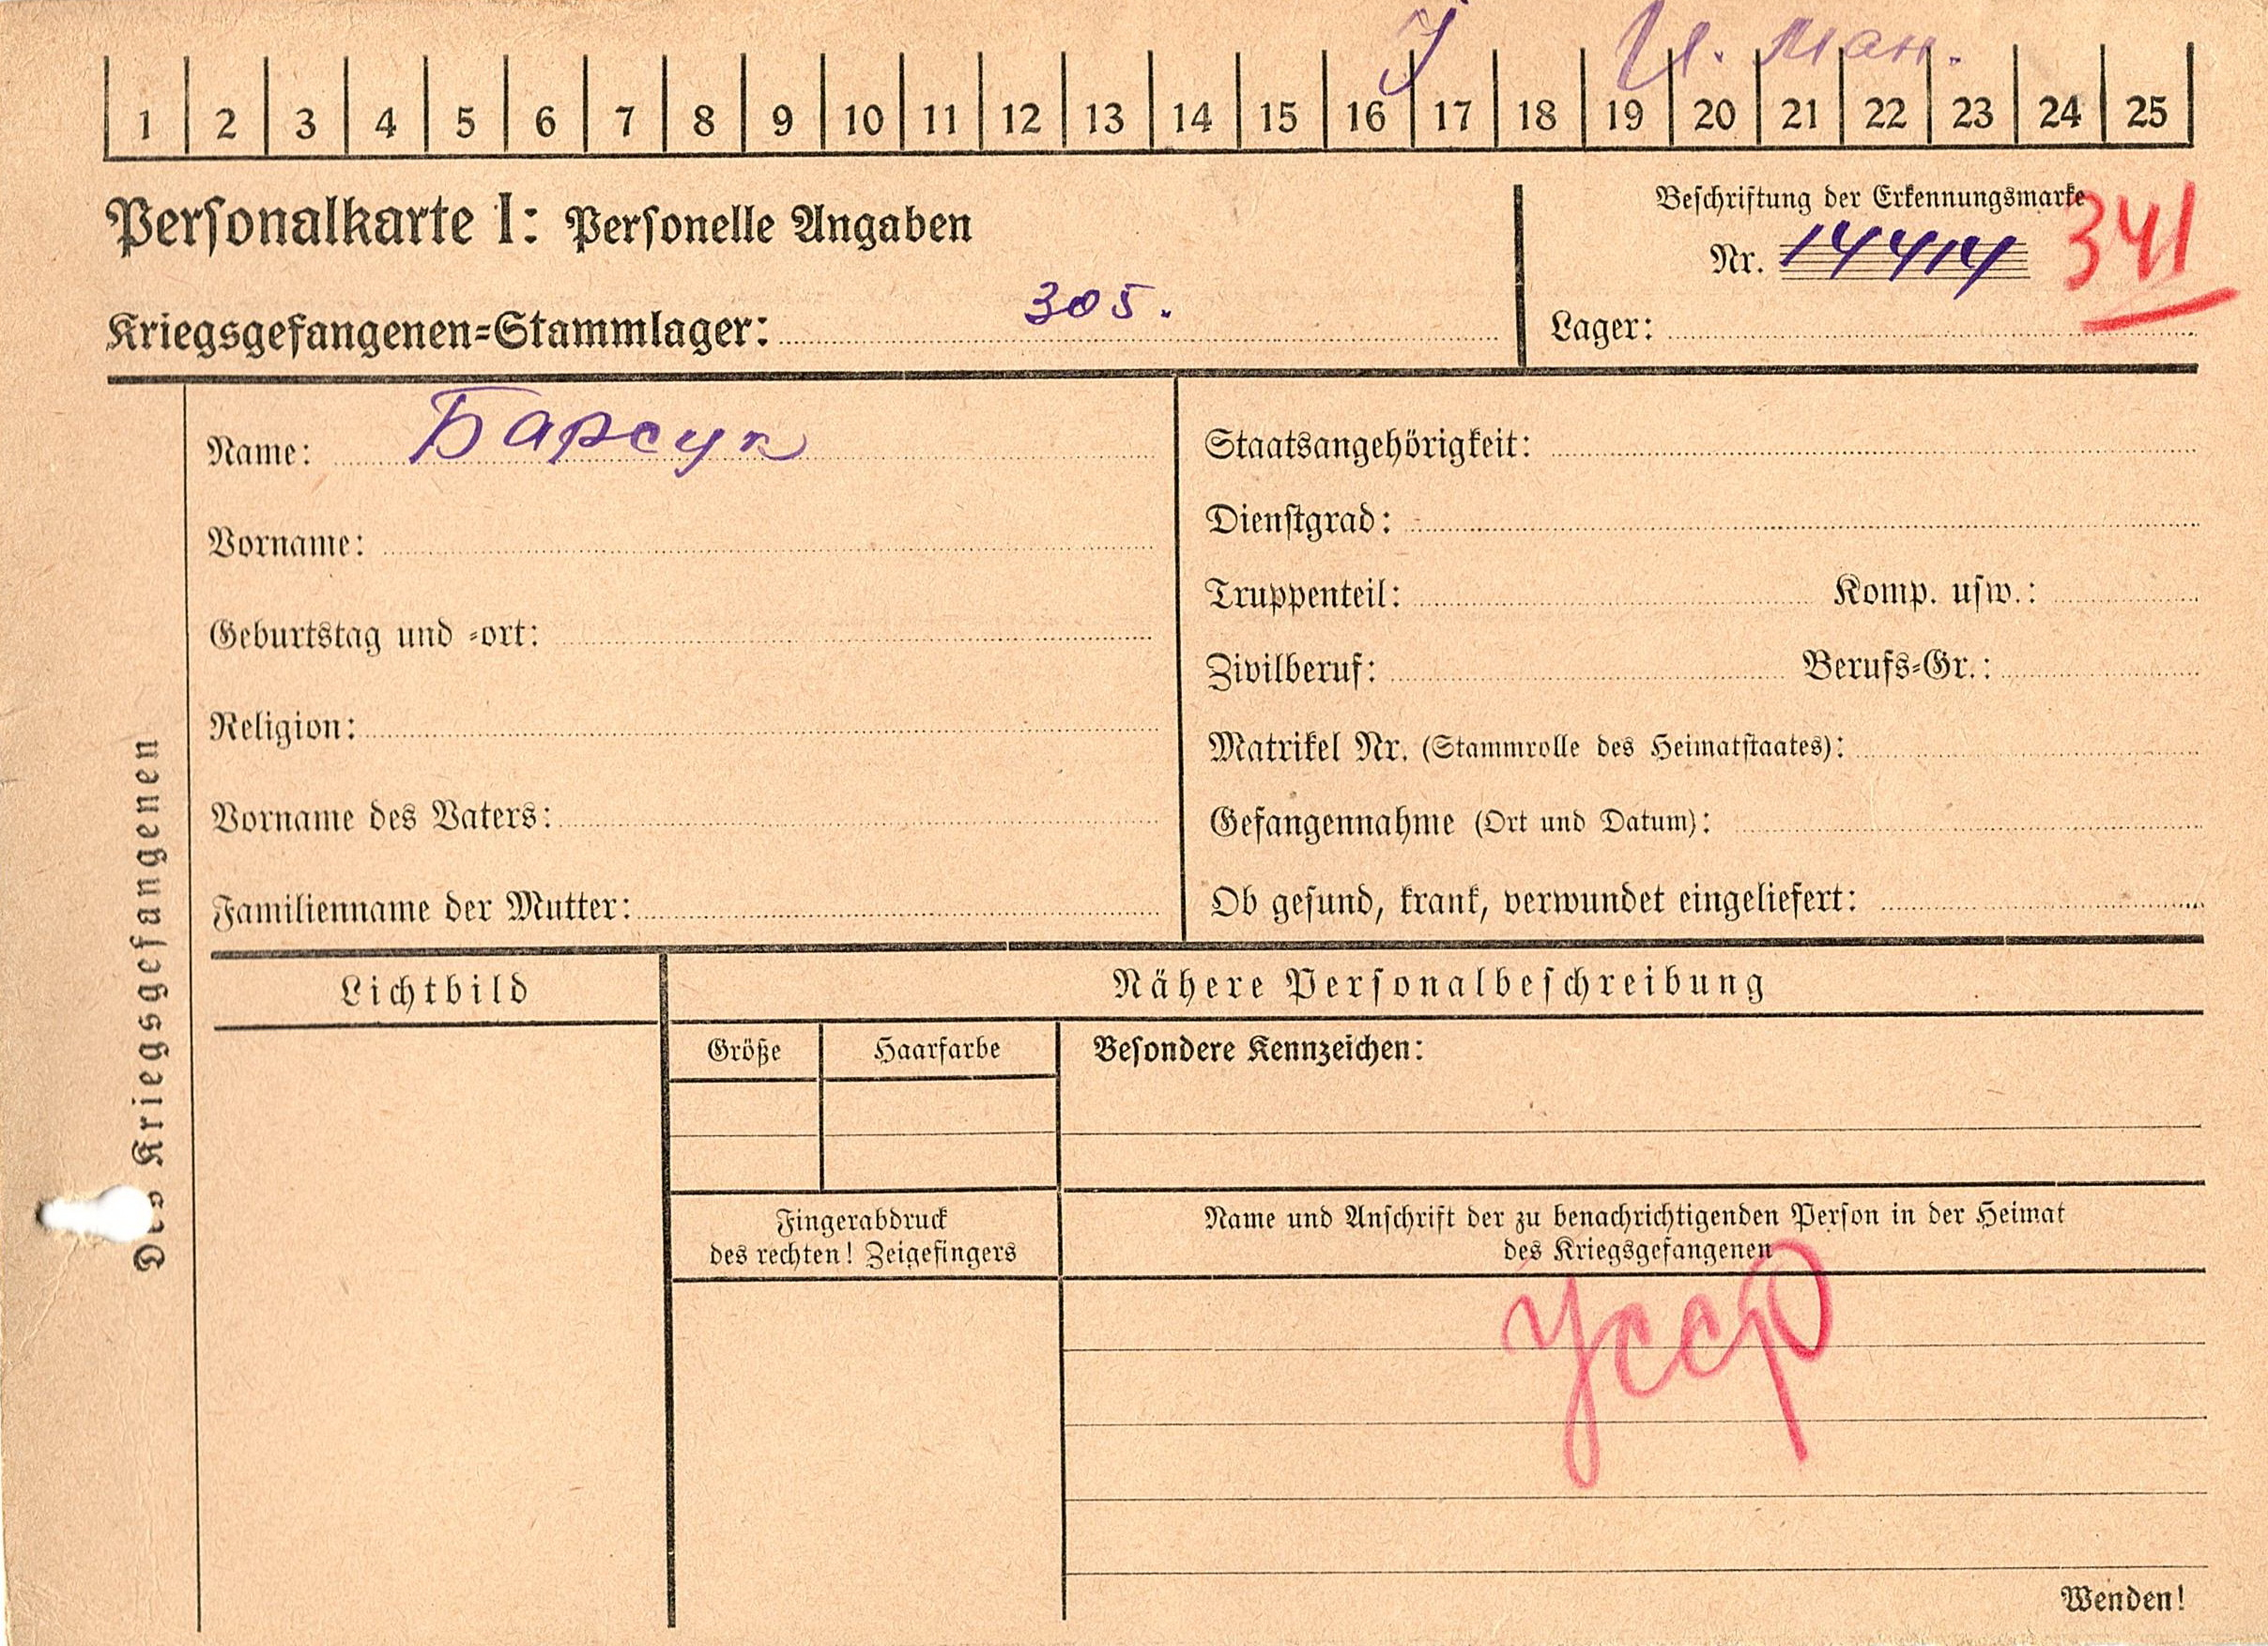 У И. Ман.
1 2 3 4 5 6 7 8 9 10 11 12 13 14 15 16 17 18 19 20 21 22 23 24 25
Personalkarte I: Personelle Angaben
Kriegsgefangenen=Stammlager: 305.
Beschriftung der Erkennungsmarke
Nr. 14414 341
Lager:
Des Kriegsgefangenen
Name: Барсук
Vorname:
Geburtstag und =ort:
Religion:
Vorname des Vaters:
Familienname der Mutter:
Staatsangehörigkeit:
Dienstgrad:
Truppenteil: Komp. usw.:
Zivilberuf: Berufs=Gr.:
Matrikel Nr. (Stammrolle des Heimatstaates):
Gefangennahme (Ort und Datum):
Ob gesund, krank, verwundet eingeliefert:
Lichtbild
Nähere Personalbeschreibung
Größe Haarfarbe Besondere Kennzeichen:
Fingerabdruck
des rechten! Zeigefingers
Name und Anschrift der zu benachrichtigenden Person in der Heimat
des Kriegsgefangenen
УССР
Wenden!